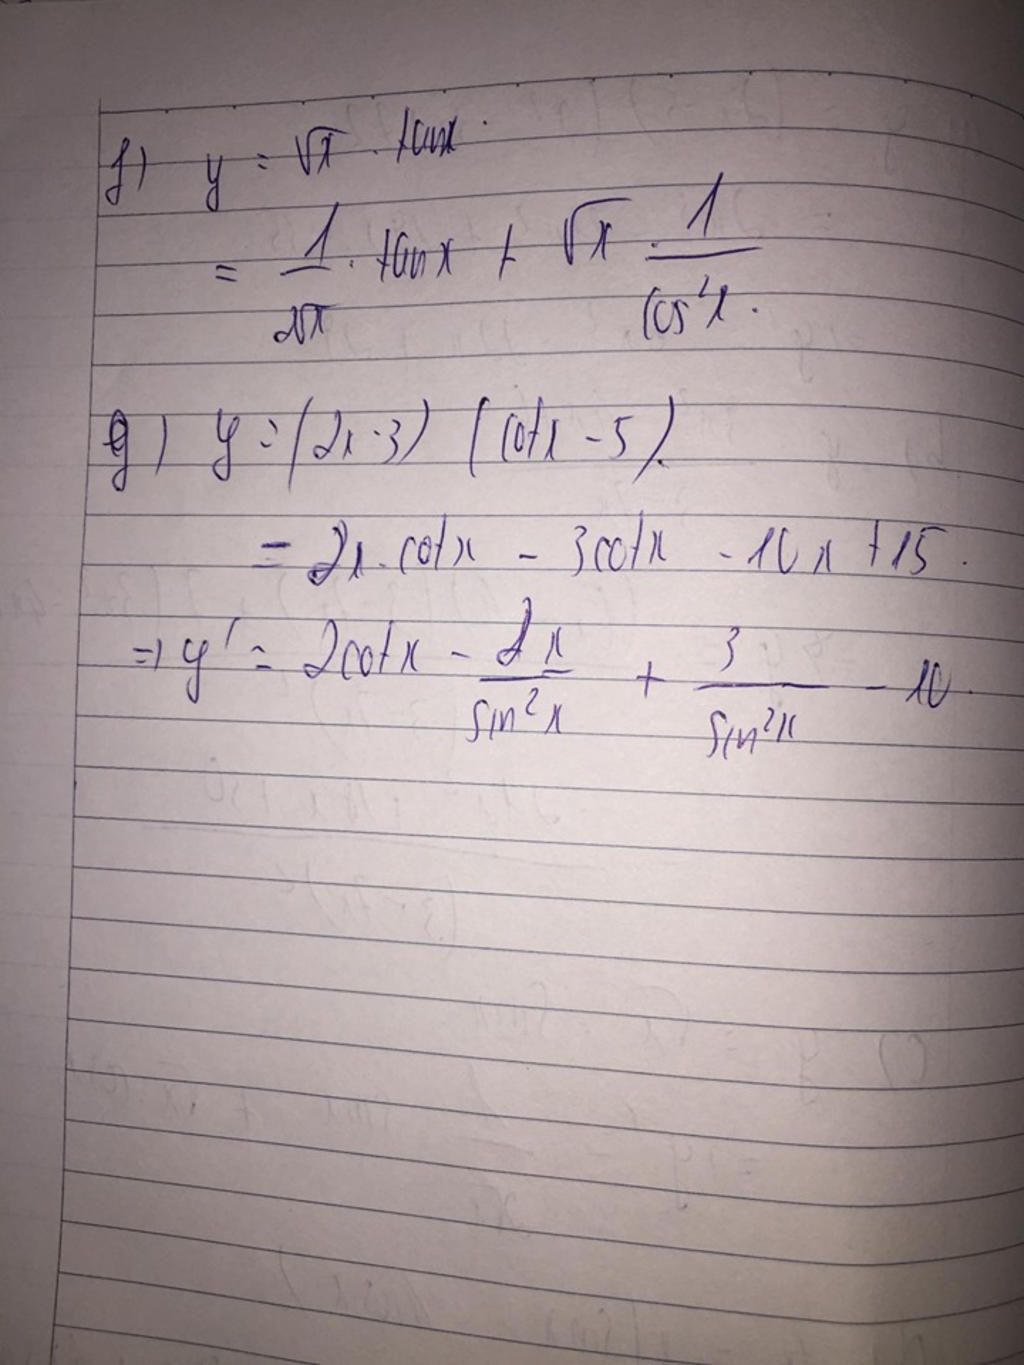 f) y = √x . tanx.
= 1/2√x . tanx + √x . 1/cos²x.
g) y = (2x-3) (cotx - 5).
= 2x.cotx - 3cotx - 10x + 15.
=> y' = 2cotx - 2x/sin²x + 3/sin²x - 10.